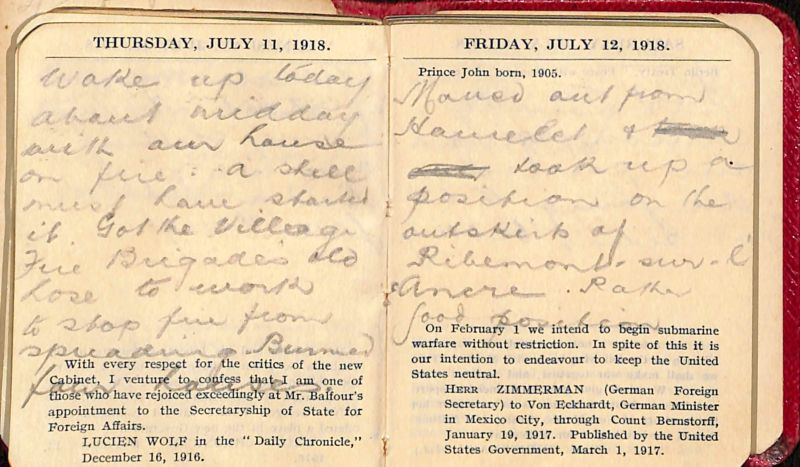 THURSDAY, JULY 11, 1918.
Woke up today
about midday
with our house
on fire: a shell
must have started
it Got the Village
Fire Brigade's old
hose to work
to stop fire from
spreading. Burned
With every respect for the critics of the new
Cabinet, I venture to confess that I am one of
those who have rejoiced exceedingly at Mr. Balfour's
appointment to the Secretaryship of State for
Foreign Affairs.
LUCIEN WOLF in the "Daily Chronicle,"
December 16, 1916.
FRIDAY, JULY 12, 1918.
Prince John born, 1905.
Moved out from
Hamelet &
took up a
position on the
outskirts of
Ribemont-sur-l'
Ancre. Rather
good position
On February 1 we intend to begin submarine
warfare without restriction. In spite of this it is
our intention to endeavour to keep the United
States neutral.
HERR ZIMMERMAN (German Foreign
Secretary) to Von Eckhardt, German Minister
in Mexico City, through Count Bernstorff,
January 19, 1917. Published by the United
States Government, March 1, 1917.